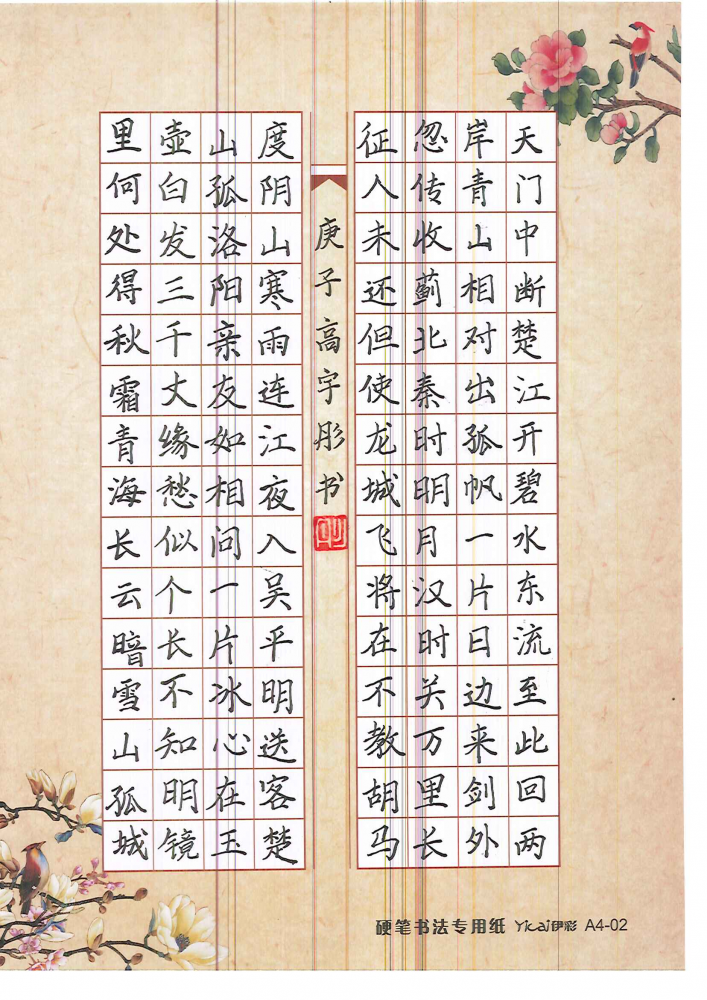 天门中断楚江开碧水东流至此回两
岸青山相对出孤帆一片日边来剑外
忽传收蓟北秦时明月汉时关万里长
征人未还但使龙城飞将在不教胡马
庚子高宇彤书
度阴山寒雨连江夜入吴平明送客楚
山孤洛阳亲友如相问一片冰心在玉
壶白发三千丈缘愁似个长不知明镜
里何处得秋霜青海长云暗雪山孤城
硬笔书法专用纸 Yicai伊彩 A4-02